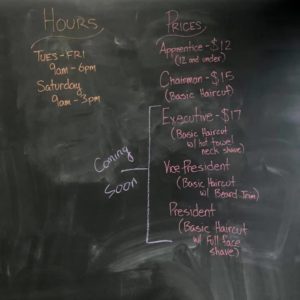 HOURS
TUES-FRI
9am-6pm
Saturday
9am-3pm
PRICES
Apprentice-$12
(12 and under)
Chairman-$15
(Basic Haircut)
Coming
Soon
Executive-$17
(Basic Haircut
w/ hot towel
neck shave)
Vice President
(Basic Haircut
w/ Beard Trim)
President
(Basic Haircut
w/ Full face
shave)